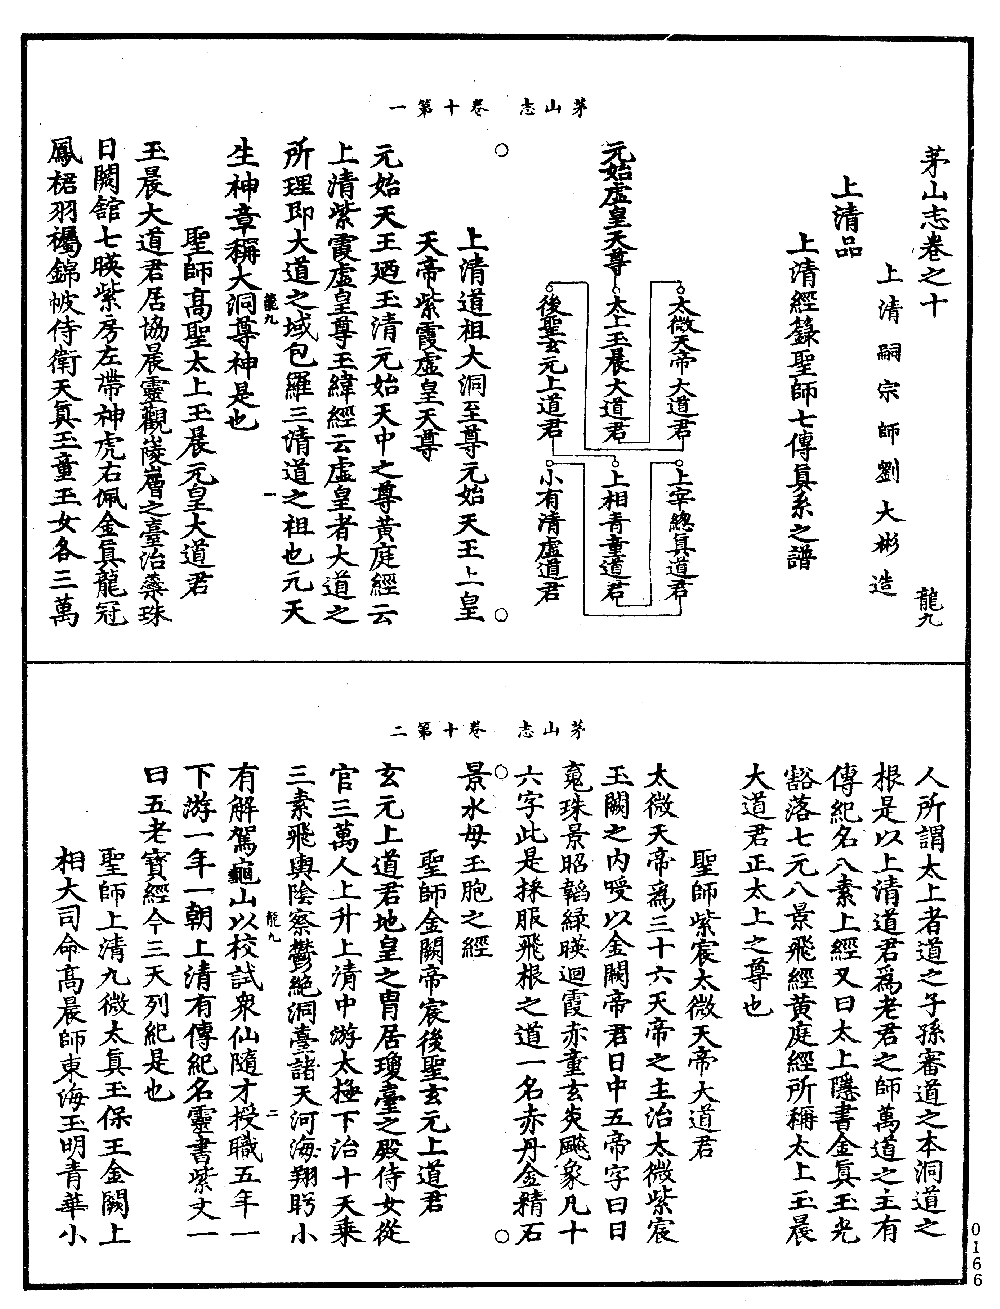 茅山志　卷十第一
茅山志卷之十　龍九
上清嗣宗師劉大彬造
上清品
上清經籙聖師七傳真系之譜
元始虛皇天尊
太微天帝大道君
太上玉晨大道君
後聖玄元上道君
上宰總真道君
上相青童道君
小有清虛道君
上清道祖大洞至尊元始天王上皇
天帝紫霞虛皇天尊
元始天王廼玉清元始天中之尊黃庭經云
上清紫霞虛皇尊玉緯經云虛皇者大道之
所理即大道之域包羅三清道之祖也元天
龍九　一
生神章稱大洞尊神是也
聖師高聖太上玉晨元皇大道君
玉晨大道君居協晨靈觀崚層之臺治蘂珠
日闕舘七暎紫房左帶神虎右佩金真龍冠
鳳裙羽襡錦帔侍衛天真玉童玉女各三萬
茅山志　卷十第二
人所謂太上者道之子孫審道之本洞道之
根是以上清道君爲老君之師萬道之主有
傳紀名八素上經又曰太上隱書金真玉光
豁落七元八景飛經黃庭經所稱太上玉晨
大道君正太上之尊也
聖師紫宸太微天帝大道君
太微天帝爲三十六天帝之主治太微紫宸
玉闕之內受以金闕帝君日中五帝字曰日
䰟珠景昭韜綠暎迴霞赤童玄炎飈象凡十
六字此是採服飛根之道一名赤丹金精石
景水母玉胞之經
聖師金闕帝宸後聖玄元上道君
玄元上道君地皇之胄居瓊臺之殿侍女從
官三萬人上升上清中游太極下治十天乘
三素飛輿陰察鬱絕洞臺諸天河海翔眄小
龍九　二
有解駕龜山以校試衆仙隨才授職五年一
下游一年一朝上清有傳紀名靈書紫文一
曰五老寶經今三天列紀是也
聖師上清九微太真玉保王金闕上
相大司命高晨師東海玉明青華小
0166